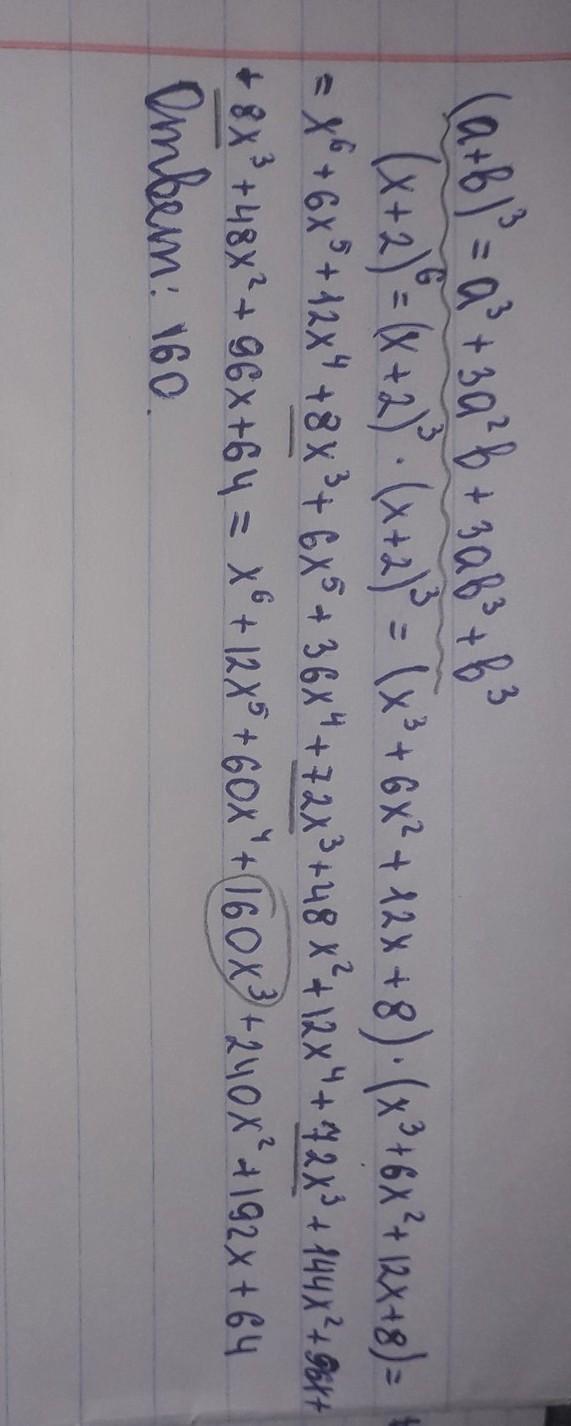 (a+b)³ = a³ + 3a²b + 3ab³ + b³
(x+2)⁶ = (x+2)³ · (x+2)³ = (x³ + 6x² + 12x + 8) · (x³ + 6x² + 12x + 8) =
= x⁶ + 6x⁵ + 12x⁴ + 8x³ + 6x⁵ + 36x⁴ + 72x³ + 48x² + 12x⁴ + 72x³ + 144x² + 96x +
+ 8x³ + 48x² + 96x + 64 = x⁶ + 12x⁵ + 60x⁴ + 160x³ + 240x² + 192x + 64
Ответ: 160.